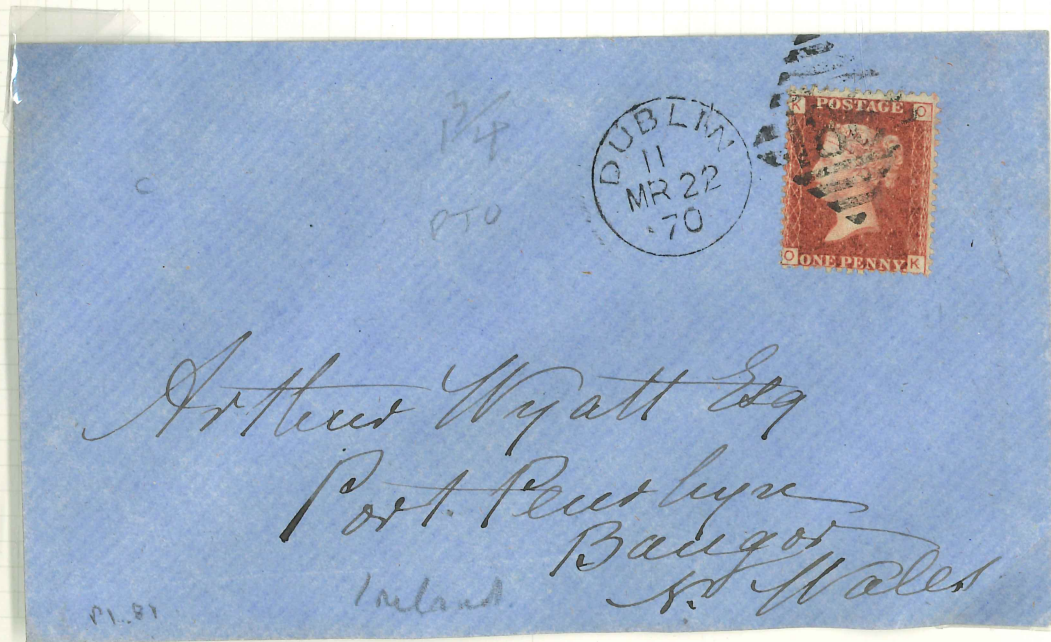 DUBLIN
11
MR 22
70
K POSTAGE O
O ONE PENNY K
PTO
Arthur Wyatt Esq
Port Penrhyn
Bangor
N. Wales
Ireland